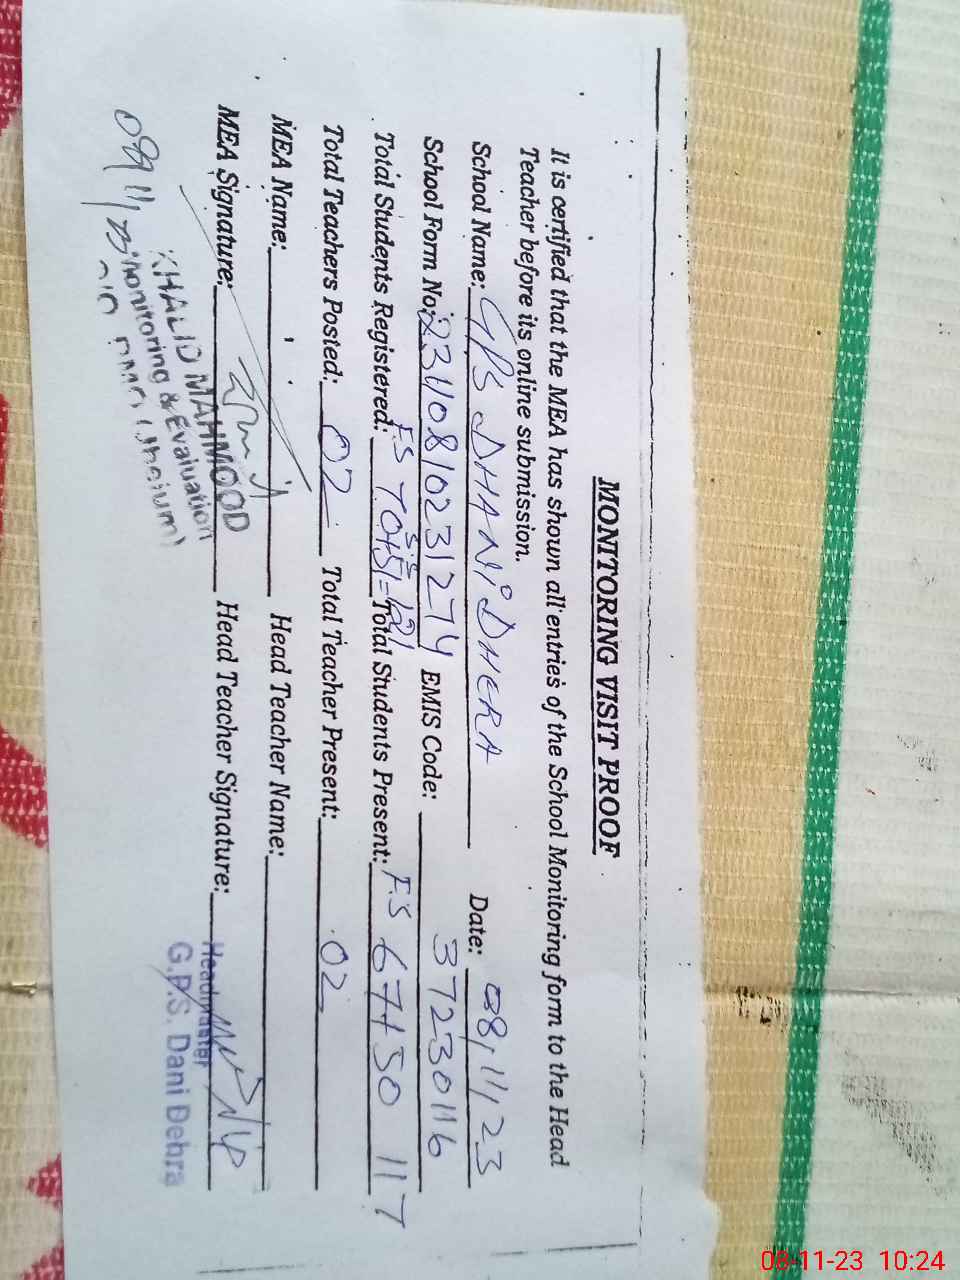 MONITORING VISIT PROOF
It is certified that the MEA has shown all entries of the School Monitoring form to the Head
Teacher before its online submission.
School Name: GPS DHANI DHERA Date: 08/11/23
School Form No: 231108102312774 EMIS Code: 37230116
Total Students Registered: FS 70+51=121 Total Students Present: FS 67+50 117
Total Teachers Posted: 02 Total Teacher Present: 02
MEA Name: Head Teacher Name:
MEA Signature: Head Teacher Signature:
KHALID MAHMOOD
Monitoring & Evaluation
Headmaster
G.P.S. Dani Dehra
08-11-23 10:24